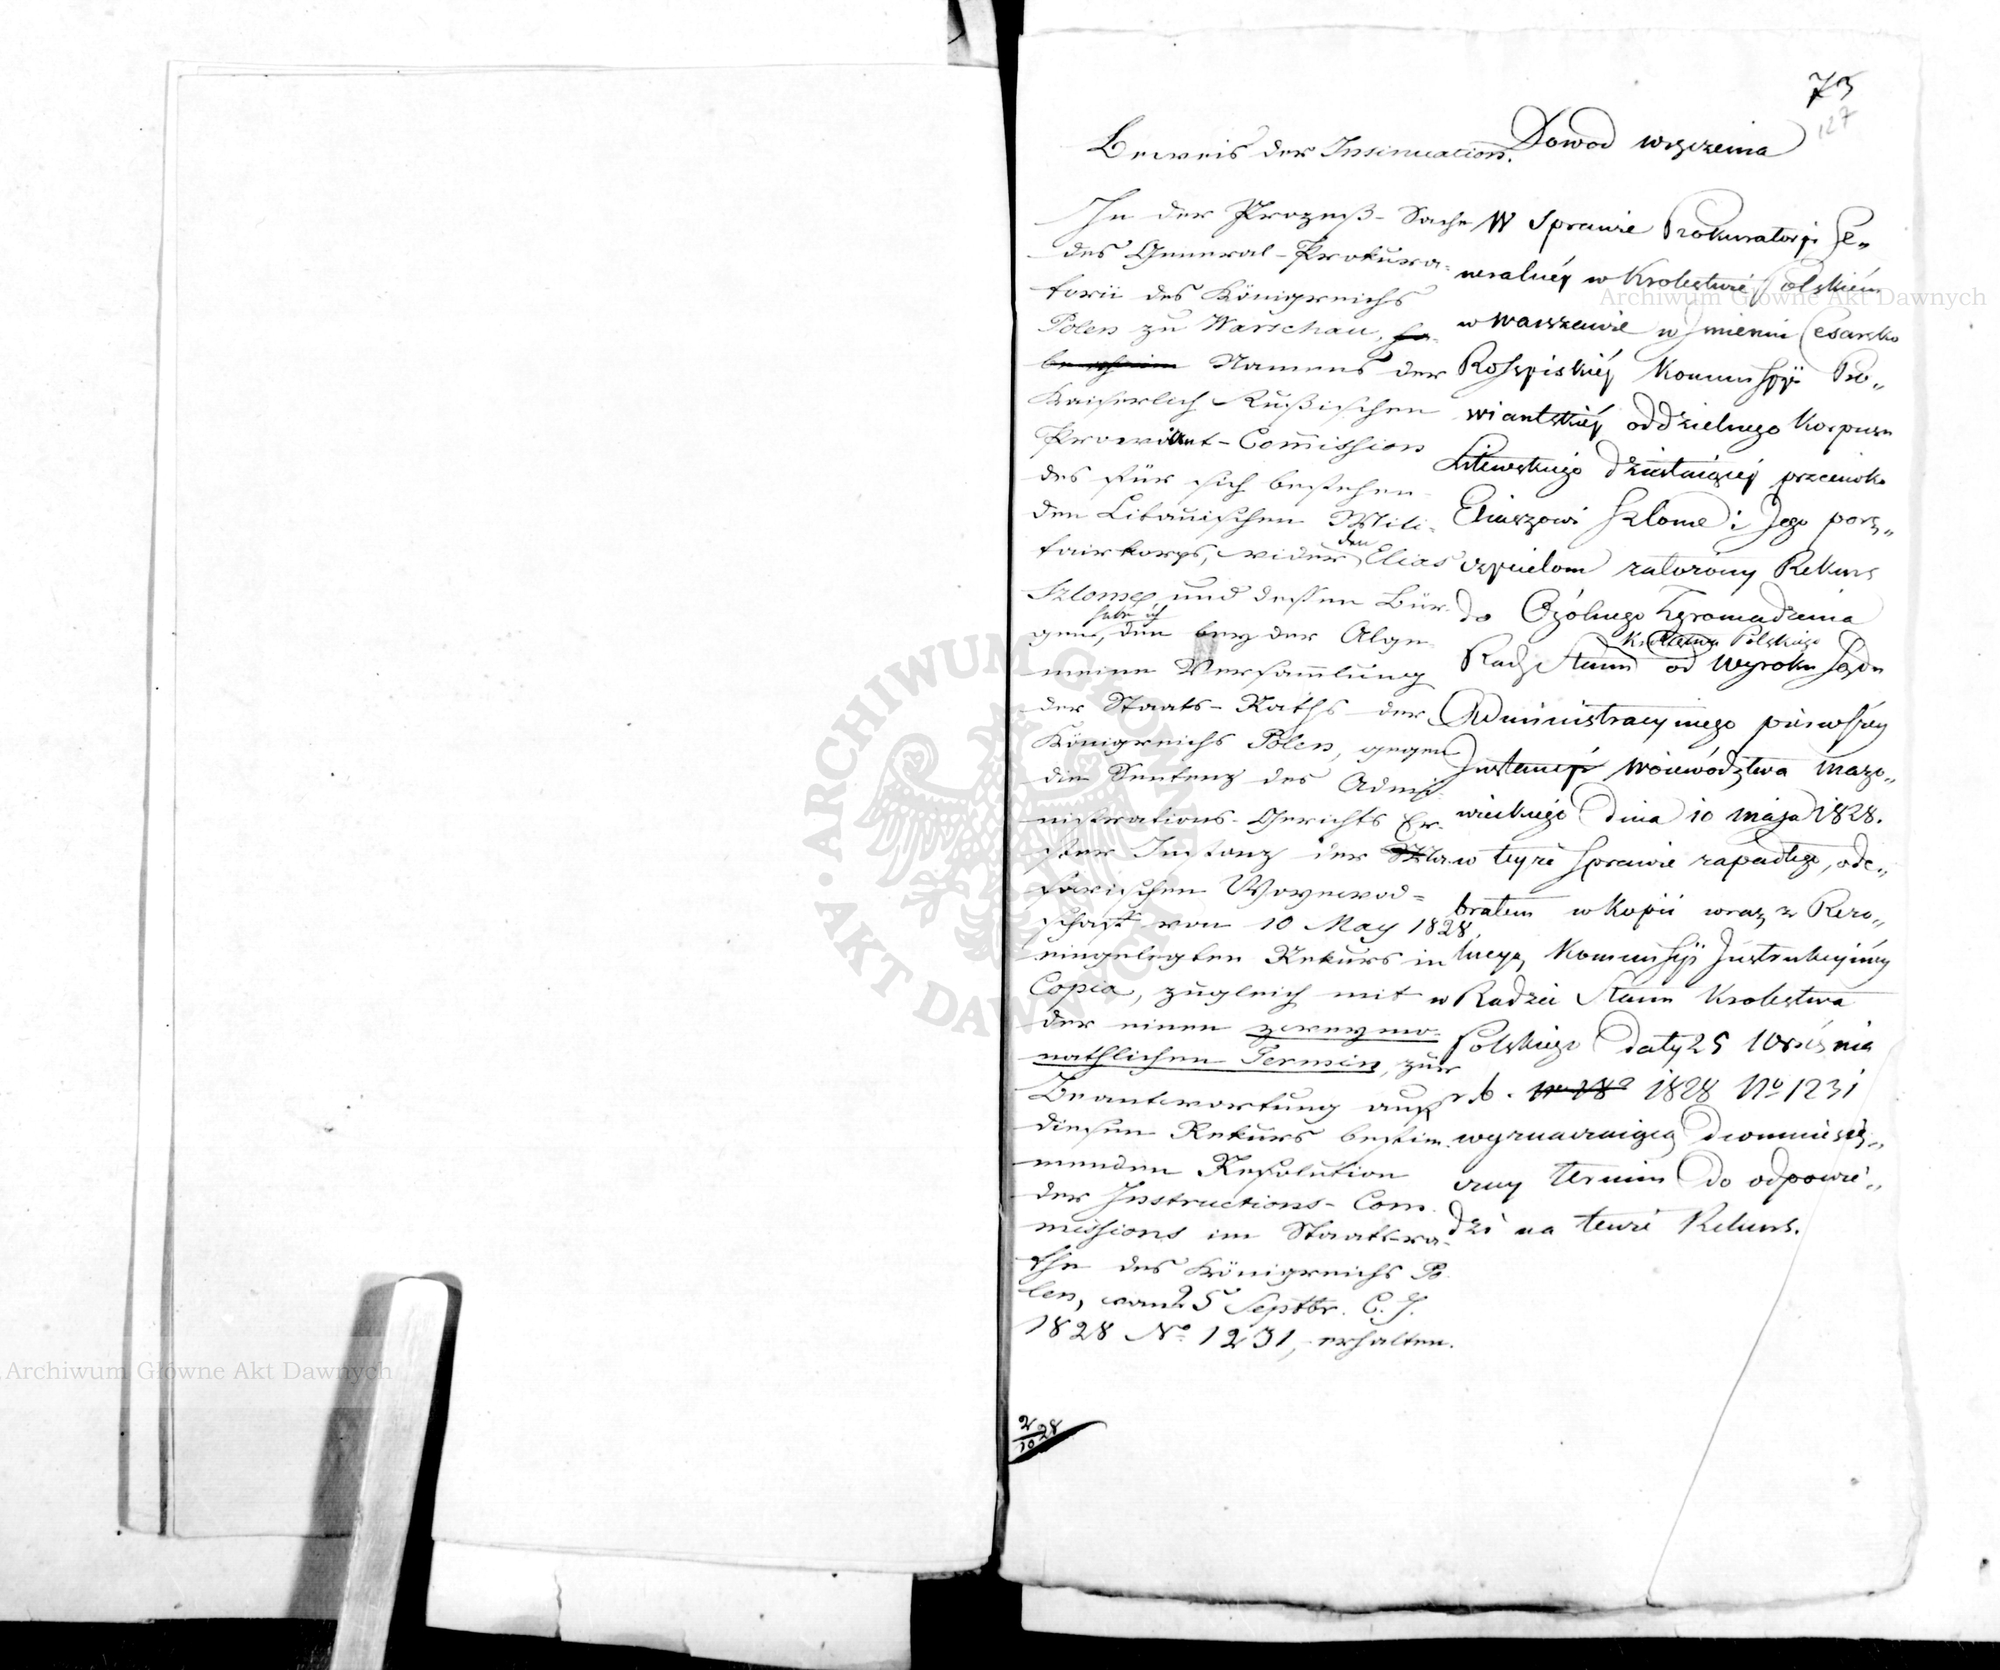 73
127
Beweis der Insinuation.
In der Prozeß-Sache
des General-Prokura-
torii des Königreichs
Polen zu Warschau, ha-
Namens der
Kaiserlich Rußischen
Proviant-Commission
des für sich bestehen-
den Litauischen Mili-
tairkorps, wider den Elias
Szlome und dessen Bür-
gen, habe ich den bey der Alge-
meine Versammlung
der Staats-Raths der
Königreichs Polen, gegen
die Sentenz des Admi-
nistrations-Gerichts Er-
ster Instanz der Ma-
sovischen Woyewod-
schaft von 10 May 1828
eingelegten Rekurs in
Copia, zugleich mit
der einen zweymo-
nathlichen Termin, zur
Beantwortung auf
diesen Rekurs bestim-
menden Resolution
der Instructions-Com-
missions im Staatsra-
the des Königreichs Po-
len, vom 25 Septbr. C. J.
1828 No. 1231, erhalten.
2/10 28
Dowod wręczenia
W Sprawie Prokuratoryi Ge„
neralnéy w Krolestwie Polskiém
w Warszawie w Jmieniu Cesarsko
Rossyiskiéy Kommissyi Pro„
wiantskiéy oddzielnego Korpusu
Litewskiego działaiącey przeciwko
Eliaszowi Szlome i Jego porę„
czycielom założony Rekurs
do Ogólnego Zgromadzenia
Rady Stanu Krolestwa Polskiego od Wyroku Sądu
Administracyinego pierwszey
Instancyi Woiewództwa Mazo„
wieckiego dnia 10 maja 1828.
w teyże sprawie zapadłego, ode„
brałem w Kopii wraz z Rezo„
lucyą Kommissyi Instrukcyinéy
w Radzie Stanu Krolestwa
Polskiego daty 25 Września
r. b. 1828 No 1231
wyznaczaiącą dwumiesię„
czny termin do odpowie„
dzi na tenże Rekurs.
Archiwum Główne Akt Dawnych
Archiwum Główne Akt Dawnych
ARCHIWUM GŁÓWNE AKT DAWNYCH